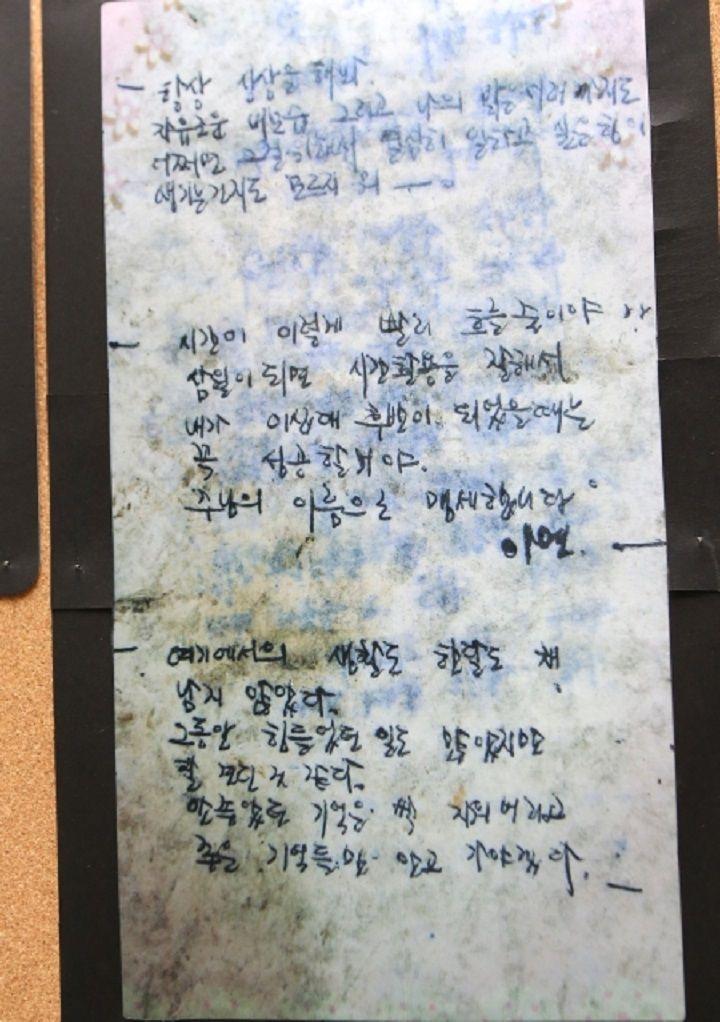 항상 상상을 해봐.
자유로운 내모습 그리고 나의 밝은 미래까지도
어쩌면 그걸 위해서 열심히 일하고 싶은 힘이
생기는건지도 모르지 뭐
시간이 이렇게 빨리 흐를 줄이야
삼월이 되면 시간활용을 잘해서
내가 이십대 후반이 되었을때는
꼭 성공할거야.
주님의 이름으로 맹세합니다.
여기에서의 생활도 한달도 채
남지 않았다.
그동안 힘들었던 일도 많았지만
잘 견딘 것 같다.
안좋았던 기억은 싹 지워버리고
좋은 기억들만 안고 가야겠다.